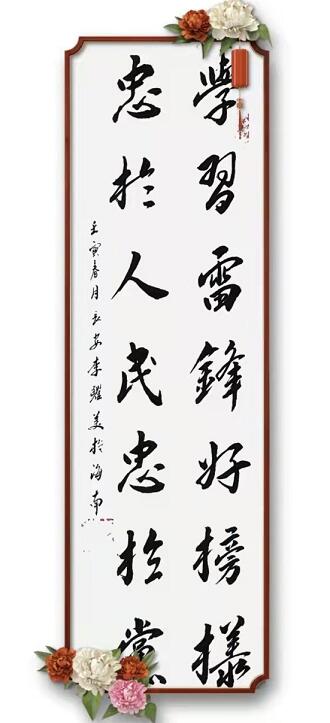 學習雷鋒好榜樣
忠於人民忠於黨
壬寅春月長安李耀美於海南